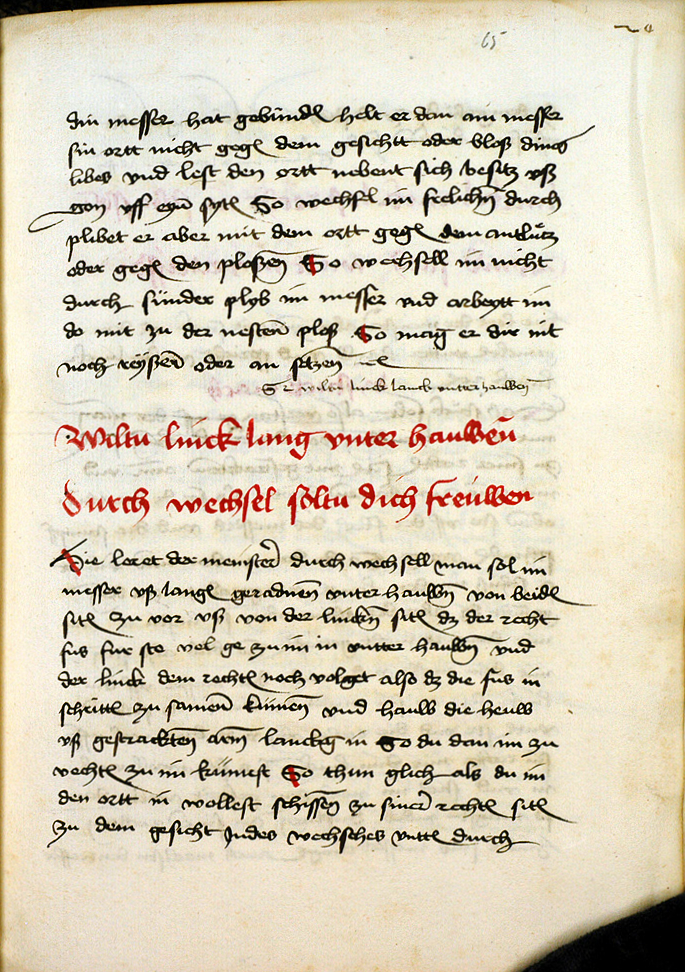 65
din messer hat gebünden helt er dan ain messer
sin ortt nicht gegen dem gesichtt oder bloß dines
libes vnd lest den ortt nebent sich besitz vß
gon vff eyn syten So wechsel im frelichen durch
plibet er aber mit dem ortt gegen dem antlütz
oder gegen den ploßen So wechsell im nicht
durch sünder plyb im messer vnd arbeytt im
do mit zu der nesten ploß So mag er dir nit
noch reyßen oder an setzen
wiltu linck lanck vntter hauwen
Wiltu linck lang vnter hauwen
durch wechsel soltu dich freuwen
Hie leret der meinster durch wechsell man sol im
messer vß langen geradnen vnter hauwen von beiden
siten zu vor vß von der lincken siten dz der recht
fus fur ste vel ge zu im in vntter hauwen vnd
der linck dem rechten noch volget also dz die fus in
schritten zu samen kümen vnd hauw die heuw
vß gestrackten arm lanckg in So du dan im zu
vechten zu im kümest So thun glich als du im
den ortt in wollest schissen zu siner rechten siten
zu dem gesicht Indes wechsches vntten durch